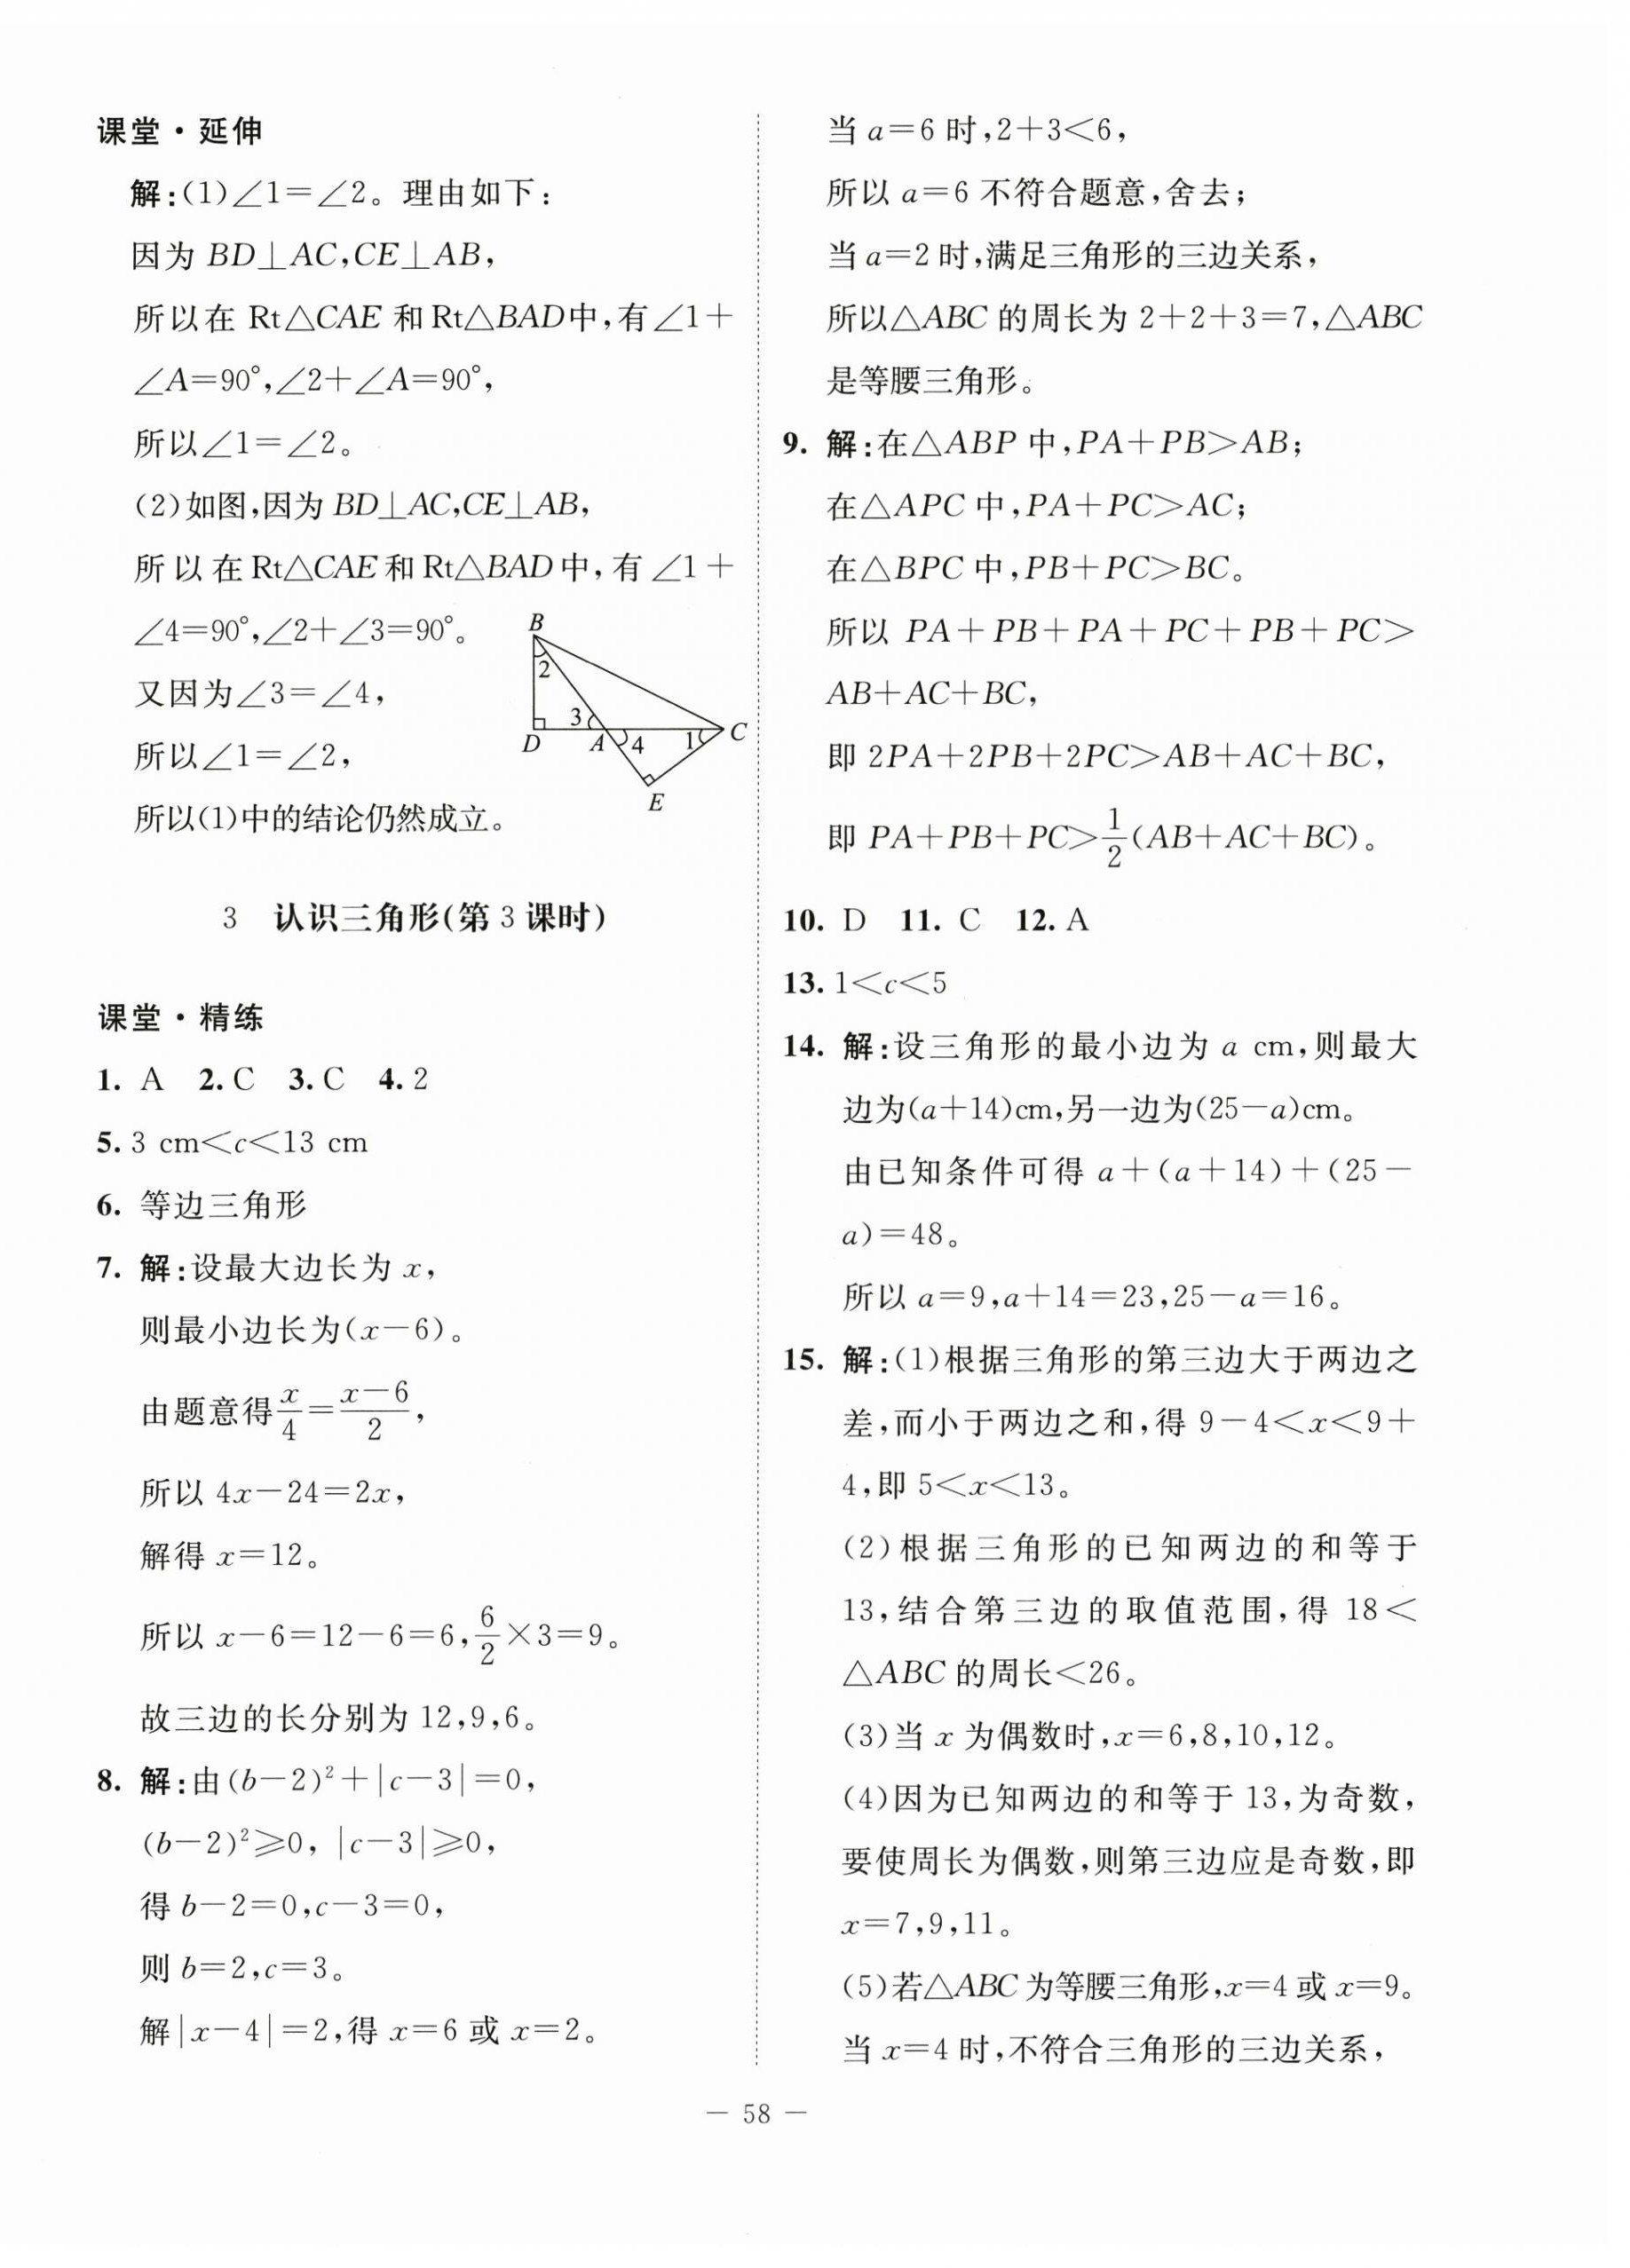 课堂·延伸
解:(1)∠1=∠2。理由如下:
因为 BD⊥AC,CE⊥AB,
所以在 Rt△CAE 和 Rt△BAD中,有∠1+
∠A=90°,∠2+∠A=90°,
所以∠1=∠2。
(2)如图,因为 BD⊥AC,CE⊥AB,
所以在 Rt△CAE 和 Rt△BAD 中,有∠1+
∠4=90°,∠2+∠3=90°。
又因为∠3=∠4,
所以∠1=∠2,
所以(1)中的结论仍然成立。
B
2
3
D
A
4
1
C
E
3 认识三角形(第 3 课时)
课堂·精练
1. A 2. C 3. C 4. 2
5. 3 cm<c<13 cm
6. 等边三角形
7. 解:设最大边长为 x,
则最小边长为(x-6)。
由题意得x/4=(x-6)/2,
所以 4x-24=2x,
解得 x=12。
所以 x-6=12-6=6,6/2×3=9。
故三边的长分别为 12,9,6。
8. 解:由(b-2)²+|c-3|=0,
(b-2)²≥0,|c-3|≥0,
得 b-2=0,c-3=0,
则 b=2,c=3。
解|x-4|=2,得 x=6 或 x=2。
当 a=6 时,2+3<6,
所以 a=6 不符合题意,舍去;
当 a=2 时,满足三角形的三边关系,
所以△ABC 的周长为 2+2+3=7,△ABC
是等腰三角形。
9. 解:在△ABP 中,PA+PB>AB;
在△APC 中,PA+PC>AC;
在△BPC 中,PB+PC>BC。
所以 PA+PB+PA+PC+PB+PC>
AB+AC+BC,
即 2PA+2PB+2PC>AB+AC+BC,
即 PA+PB+PC>1/2(AB+AC+BC)。
10. D 11. C 12. A
13. 1<c<5
14. 解:设三角形的最小边为 a cm,则最大
边为(a+14)cm,另一边为(25-a)cm。
由已知条件可得 a+(a+14)+(25-
a)=48。
所以 a=9,a+14=23,25-a=16。
15. 解:(1)根据三角形的第三边大于两边之
差,而小于两边之和,得 9-4<x<9+
4,即 5<x<13。
(2)根据三角形的已知两边的和等于
13,结合第三边的取值范围,得 18<
△ABC 的周长<26。
(3)当 x 为偶数时,x=6,8,10,12。
(4)因为已知两边的和等于 13,为奇数,
要使周长为偶数,则第三边应是奇数,即
x=7,9,11。
(5)若△ABC 为等腰三角形,x=4 或 x=9。
当 x=4 时,不符合三角形的三边关系,
— 58 —